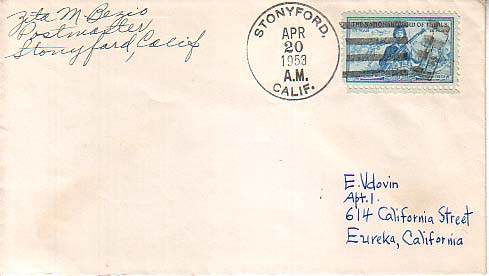 Zita M Bezio
Postmaster
Stonyford, Calif
STONYFORD.
APR
20
1953
A.M.
CALIF.
THE NATIONAL GUARD OF THE U.S.
E. Vdovin
Apt. 1.
614 California Street
Eureka, California